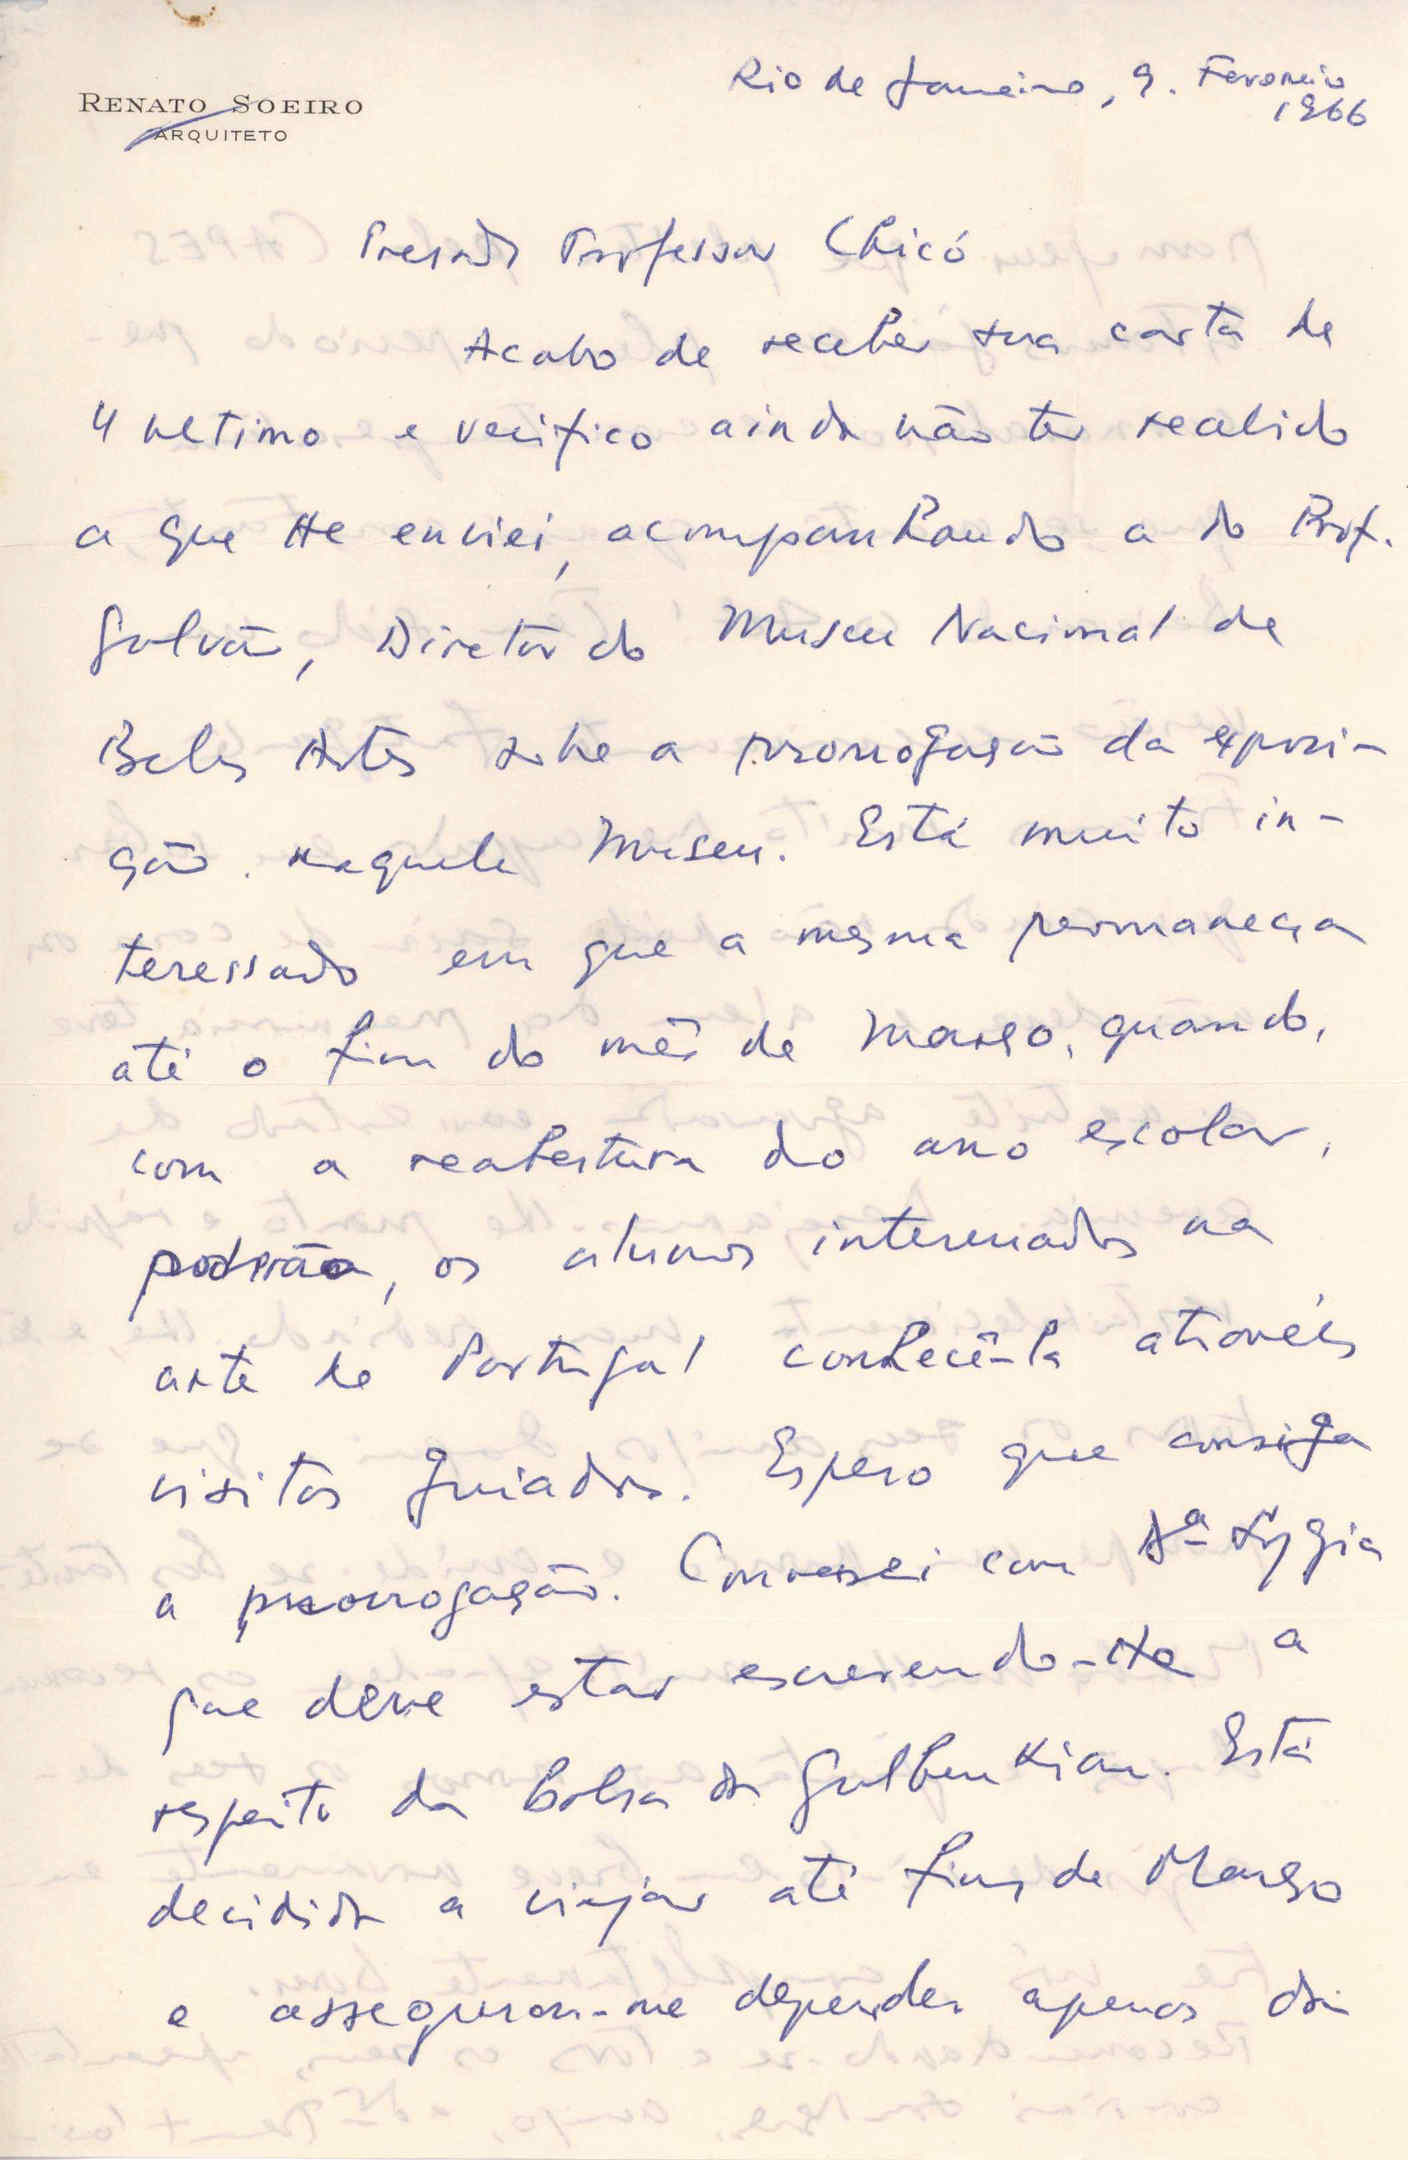 Rio de Janeiro, 9. Fevereiro
1966
RENATO SOEIRO
ARQUITETO
Presado Professor Chicó
Acabo de receber sua carta de
4 ultimo e verifico ainda não ter recebido
a que lhe enviei, acompanhando a do Prof.
Galvão, Diretor do Museu Nacional de
Belas Artes sobre a prorrogação da exposi-
ção naquele Museu. Está muito in-
teressado em que a mesma permaneça
até o fim do mês de Março, quando,
com a reabertura do ano escolar,
poderão, os alunos interessados na
arte de Portugal conhecê-la através
visitas guiadas. Espero que consiga
a prorrogação. Conversei com Dª Lygia
que deve estar escrevendo-lhe a
respeito da bolsa da Gulbenkian. Está
decidida a viajar até fins de Março
e assegurou-me depender apenas da